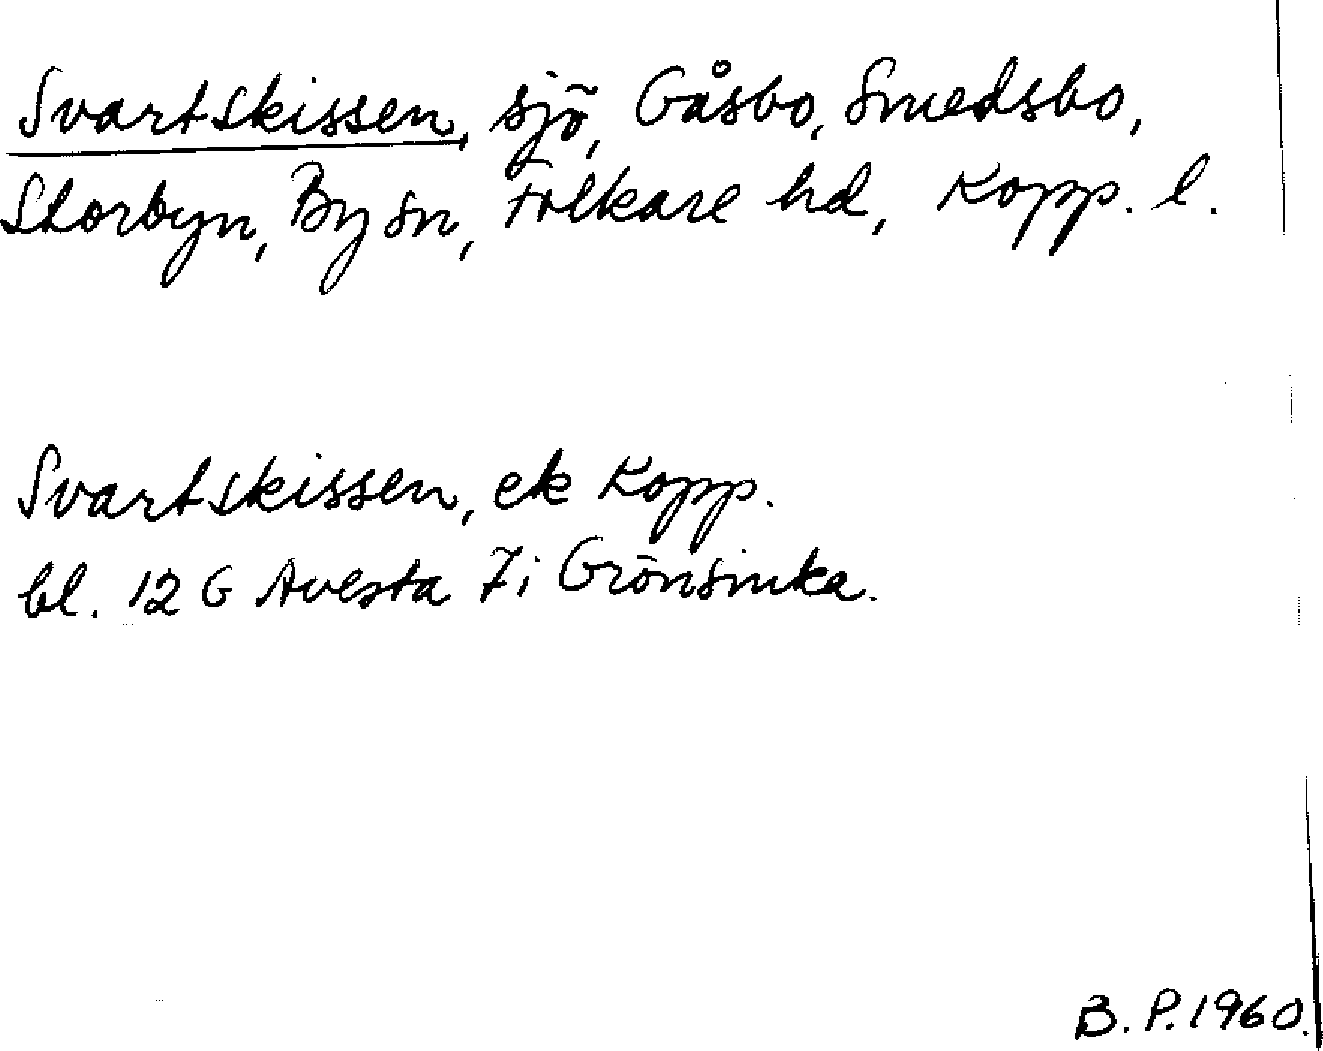 Svartskissen, sjö, Gåsbo, Smedsbo,
Storbyn, By sn, Folkare hd, Kopp. l.
Svartskissen, ek Kopp.
bl. 12 G Avesta 7i Grönsinka.
B. P. 1960.